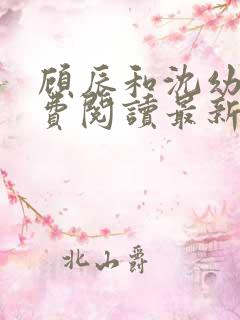 顾辰和沈幼
費閱讀最新
北山爵